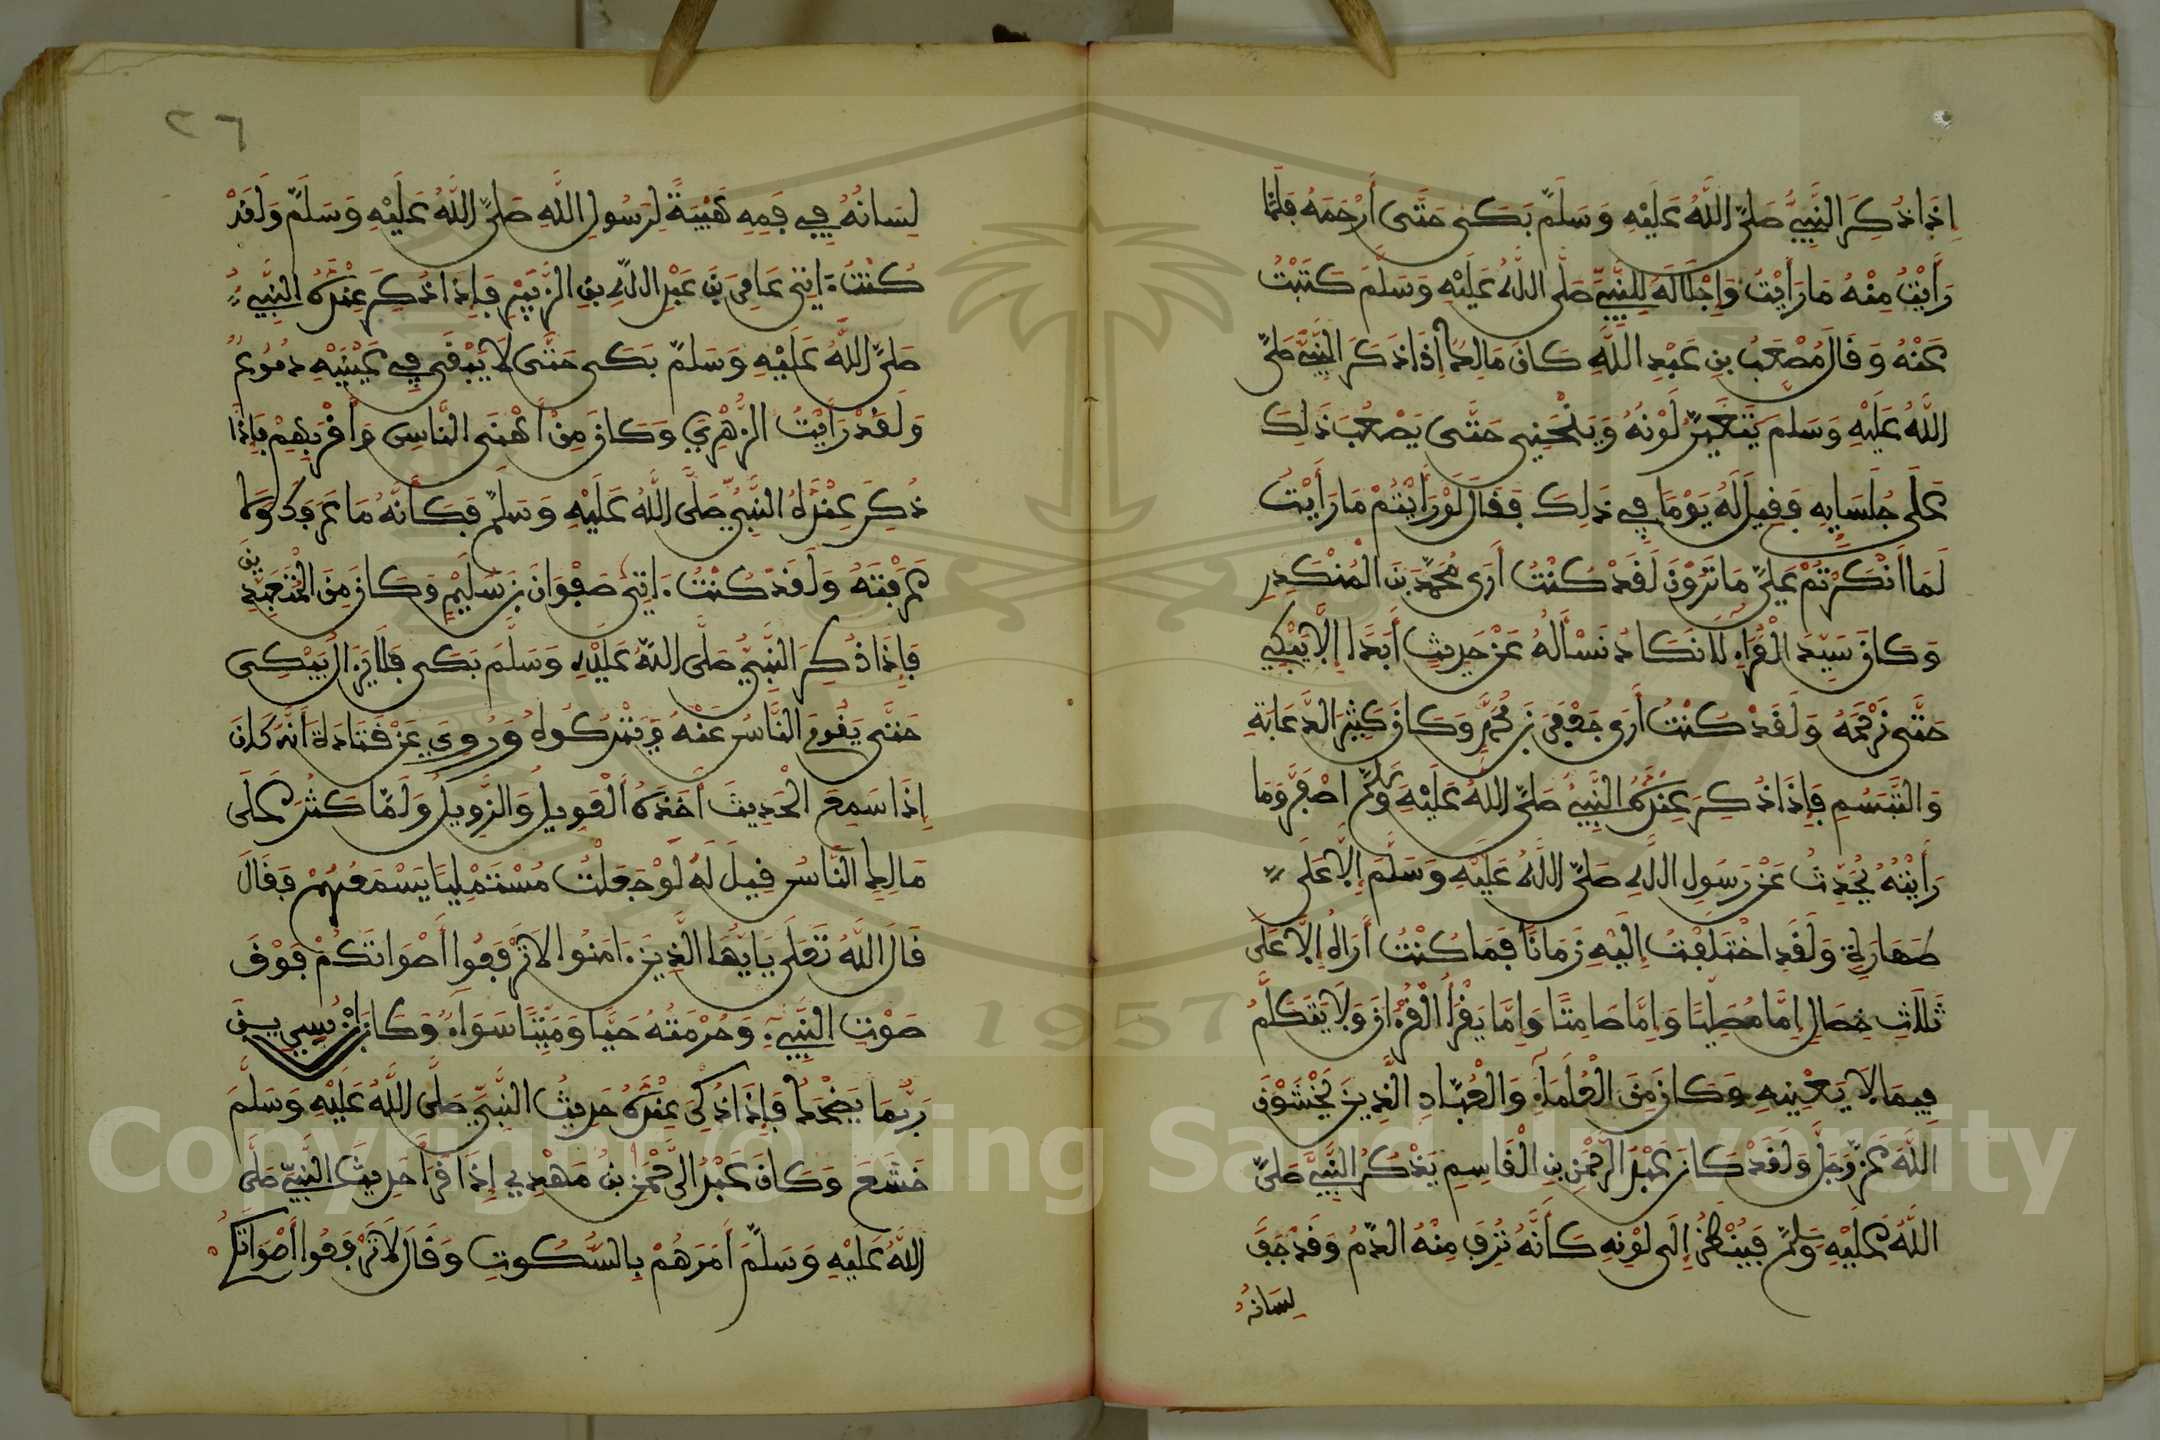 إِذَا ذُكِرَ النَّبِيُّ صَلَّى اللَّهُ عَلَيْهِ وَسَلَّمَ بَكَى حَتَّى أَرْحَمَهُ فَلَمَّا
رَأَيْتُ مِنْهُ مَا رَأَيْتُ وَإِجْلَالَهُ لِلنَّبِيِّ صَلَّى اللَّهُ عَلَيْهِ وَسَلَّمَ كَتَبْتُ
عَنْهُ وَقَالَ مُصْعَبُ بن عَبْدِ اللَّهِ كَانَ مَالِك إِذَا ذَكَرَ النَّبِيَّ صَلَّى
اللَّهُ عَلَيْهِ وَسَلَّمَ يَتَغَيَّرُ لَوْنُهُ وَيَنْحَنِي حَتَّى يَصْعُبَ ذَلِكَ
عَلَى جُلَسَايِهِ فَقِيلَ لَهُ يَوْمًا فِي ذَلِكَ فَقَالَ لَوْ رَأَيْتُمْ مَا رَأَيْتُ
لَمَا أَنْكَرْتُمْ عَلَيَّ مَا تَرَوْنَ لَقَدْ كُنْتُ أَرَى مُحَمَّدَ بْنَ الْمُنْكَدِرِ
وَكَانَ سَيِّدَ الْقُرَّاءِ لَا نَكَادُ نَسْأَلُهُ عَنْ حَدِيثٍ أَبَدًا إِلَّا يَبْكِي
حَتَّى نَرْحَمَهُ وَلَقَدْ كُنْتُ أَرَى جَعْفَرَ بْنَ مُحَمَّدٍ وَكَانَ كَثِيرَ الدُّعَابَةِ
وَالتَّبَسُّمِ فَإِذَا ذُكِرَ عِنْدَهُ النَّبِيُّ صَلَّى اللَّهُ عَلَيْهِ وَسَلَّمَ اصْفَرَّ وَمَا
رَأَيْتُهُ يُحَدِّثُ عَنْ رَسُولِ اللَّهِ صَلَّى اللَّهُ عَلَيْهِ وَسَلَّمَ إِلَّا عَلَى
طَهَارَةٍ وَلَقَدِ اخْتَلَفْتُ إِلَيْهِ زَمَانًا فَمَا كُنْتُ أَرَاهُ إِلَّا عَلَى
ثَلَاثِ خِصَالٍ إِمَّا مُصَلِّيًا وَإِمَّا صَامِتًا وَإِمَّا يَقْرَأُ الْقُرْءَانَ وَلَا يَتَكَلَّمُ
فِيمَا لَا يَعْنِيهِ وَكَانَ مِنَ الْعُلَمَاءِ وَالْعُبَّادِ الَّذِينَ يَخْشَوْنَ
اللَّهَ عَزَّ وَجَلَّ وَلَقَدْ كَانَ عَبْدُ الرَّحْمَنِ بْنِ الْقَاسِمِ يَذْكُرُ النَّبِيَّ صَلَّى
اللَّهُ عَلَيْهِ وَسَلَّمَ فَيُنْظَرُ إِلَى لَوْنِهِ كَأَنَّهُ نُزِفَ مِنْهُ الدَّمُ وَقَدْ جَفَّ
لِسَانُهُ
٢٦
لِسَانُهُ فِي فَمِهِ هَيْبَةً لِرَسُولِ اللَّهِ صَلَّى اللَّهُ عَلَيْهِ وَسَلَّمَ وَلَقَدْ
كُنْتُ ءَاتِي عَامِرَ بْنَ عَبْدِ اللَّهِ بْنِ الزُّبَيْرِ فَإِذَا ذُكِرَ عِنْدَهُ النَّبِيُّ
صَلَّى اللَّهُ عَلَيْهِ وَسَلَّمَ بَكَى حَتَّى لَا يَبْقَى فِي عَيْنَيْهِ دُمُوعٌ
وَلَقَدْ رَأَيْتُ الزُّهْرِيَّ وَكَانَ مِنْ أَهْنَى النَّاسِ وَأَقْرَبِهِمْ فَإِذَا
ذُكِرَ عِنْدَهُ النَّبِيُّ صَلَّى اللَّهُ عَلَيْهِ وَسَلَّمَ فَكَأَنَّهُ مَا عَرَفَكَ وَلَا
عَرَفْتَهُ وَلَقَدْ كُنْتُ ءَاتِي صَفْوَانَ بْنَ سُلَيْمٍ وَكَانَ مِنَ الْمُتَعَبِّدِينَ
فَإِذَا ذُكِرَ النَّبِيُّ صَلَّى اللَّهُ عَلَيْهِ وَسَلَّمَ بَكَى فَلَا يَزَالُ يَبْكِي
حَتَّى يَقُومَ النَّاسُ عَنْهُ وَيَتْرُكُوهُ وَرُوِيَ عَنْ قَتَادَةَ أَنَّهُ كَانَ
إِذَا سَمِعَ الْحَدِيثَ أَخَذَهُ الْعَوِيلُ وَالزَّوِيلُ وَلَمَّا كَثُرَ عَلَى
مَالِك النَّاسُ قِيلَ لَهُ لَوْ جَعَلْتَ مُسْتَمْلِيًا يَسْمَعُهُمْ فَقَالَ
قَالَ اللَّهُ تَعَلَى يَا أَيُّهَا الَّذِينَ ءَامَنُوا لَا تَرْفَعُوا أَصْوَاتَكُمْ فَوْقَ
صَوْتِ النَّبِيِّ وَحُرْمَتُهُ حَيًّا وَمَيِّتًا سَوَاءٌ وَكَانَ ابْنُ سِيرِينَ
رُبَّمَا يَضْحَكُ فَإِذَا ذُكِرَ عِنْدَهُ حَدِيثُ النَّبِيِّ صَلَّى اللَّهُ عَلَيْهِ وَسَلَّمَ
خَشَعَ وَكَانَ عَبْدُ الرَّحْمَنِ بْنُ مَهْدِي إِذَا قَرَأَ حَدِيثَ النَّبِيِّ صَلَّى
اللَّهُ عَلَيْهِ وَسَلَّمَ أَمَرَهُمْ بِالسُّكُوتِ وَقَالَ لَا تَرْفَعُوا أَصْوَاتَكُمْ
1957
Copyright © King Saud University